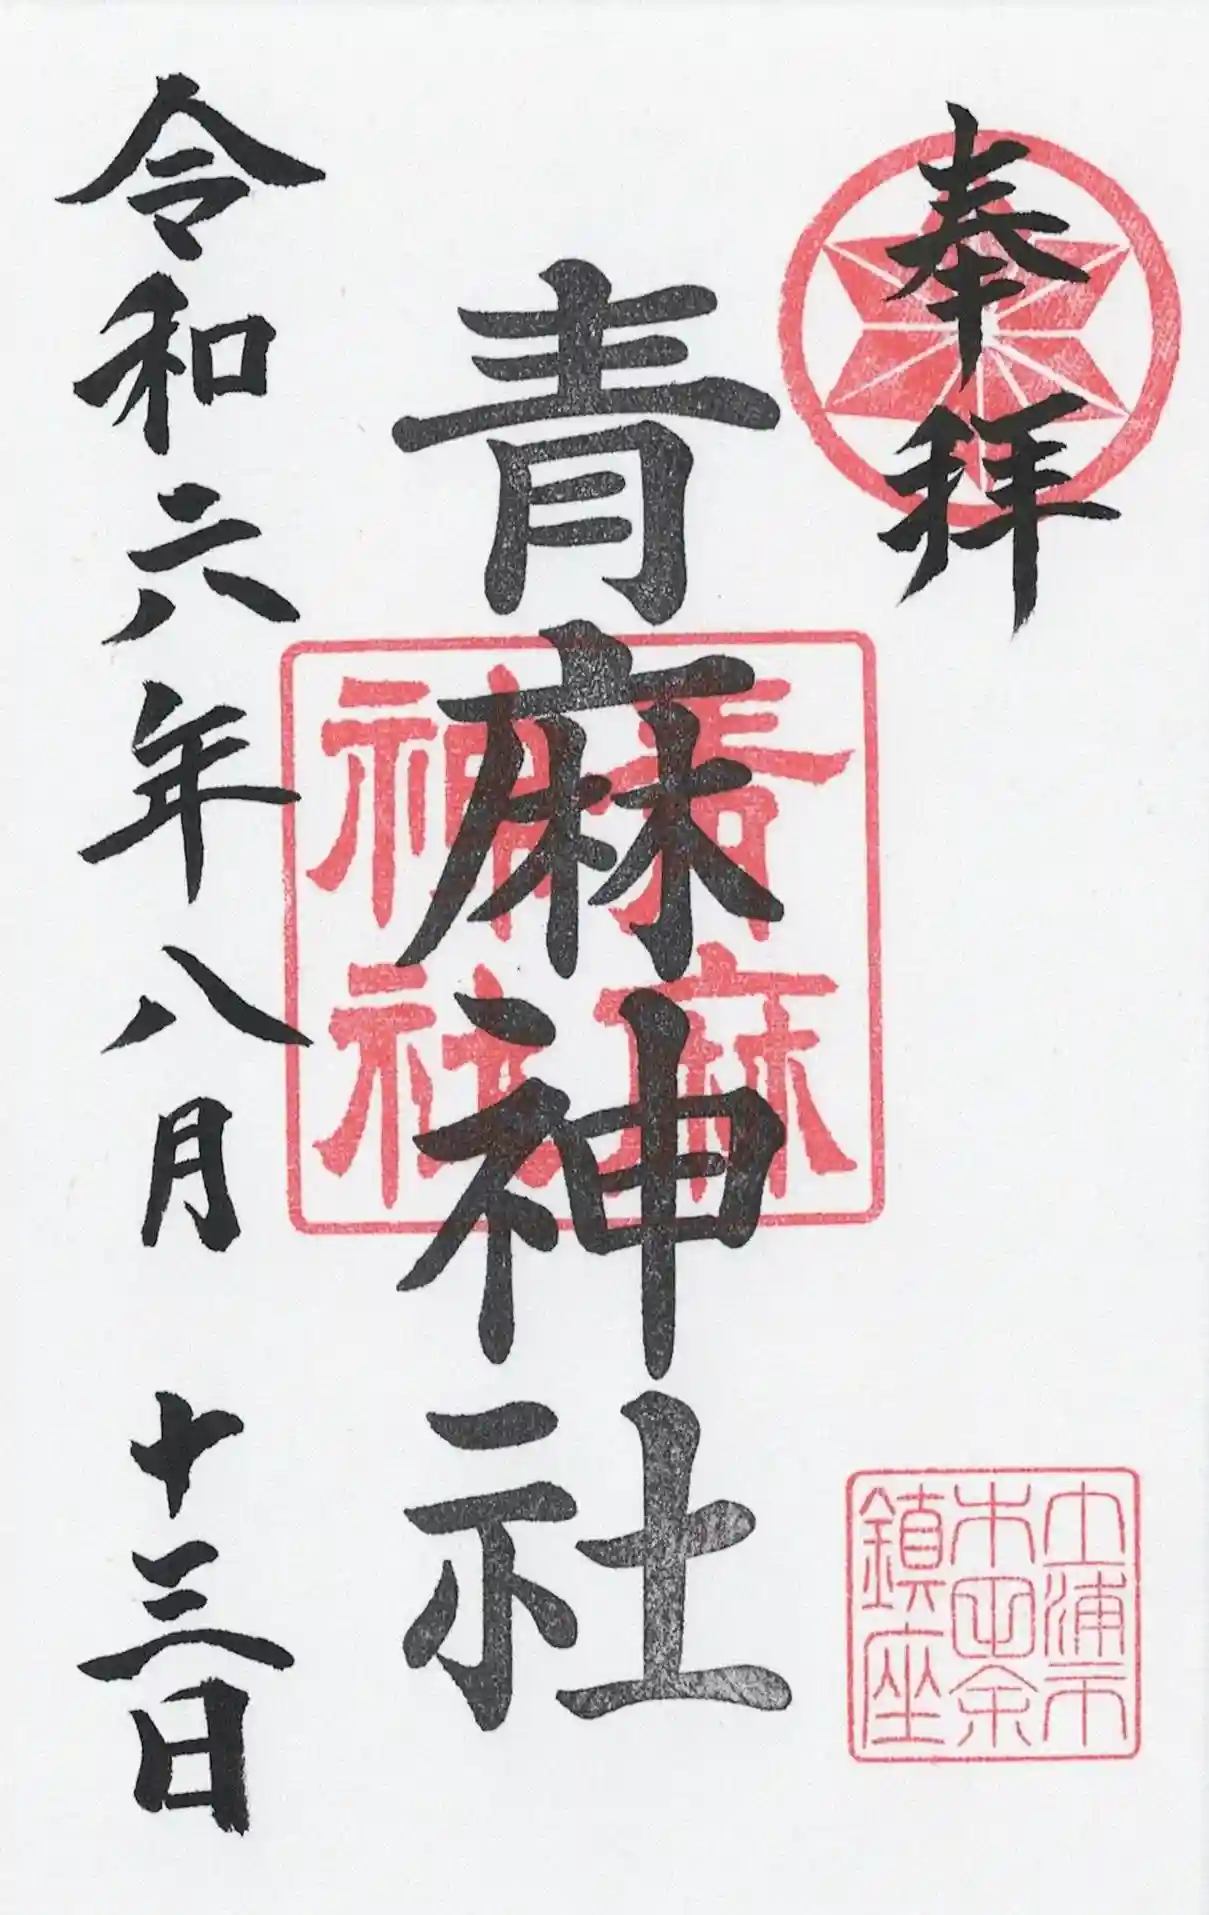 奉拝
土浦市
木田余
鎮座
青麻神社
青麻
神社
令和六年八月十三日